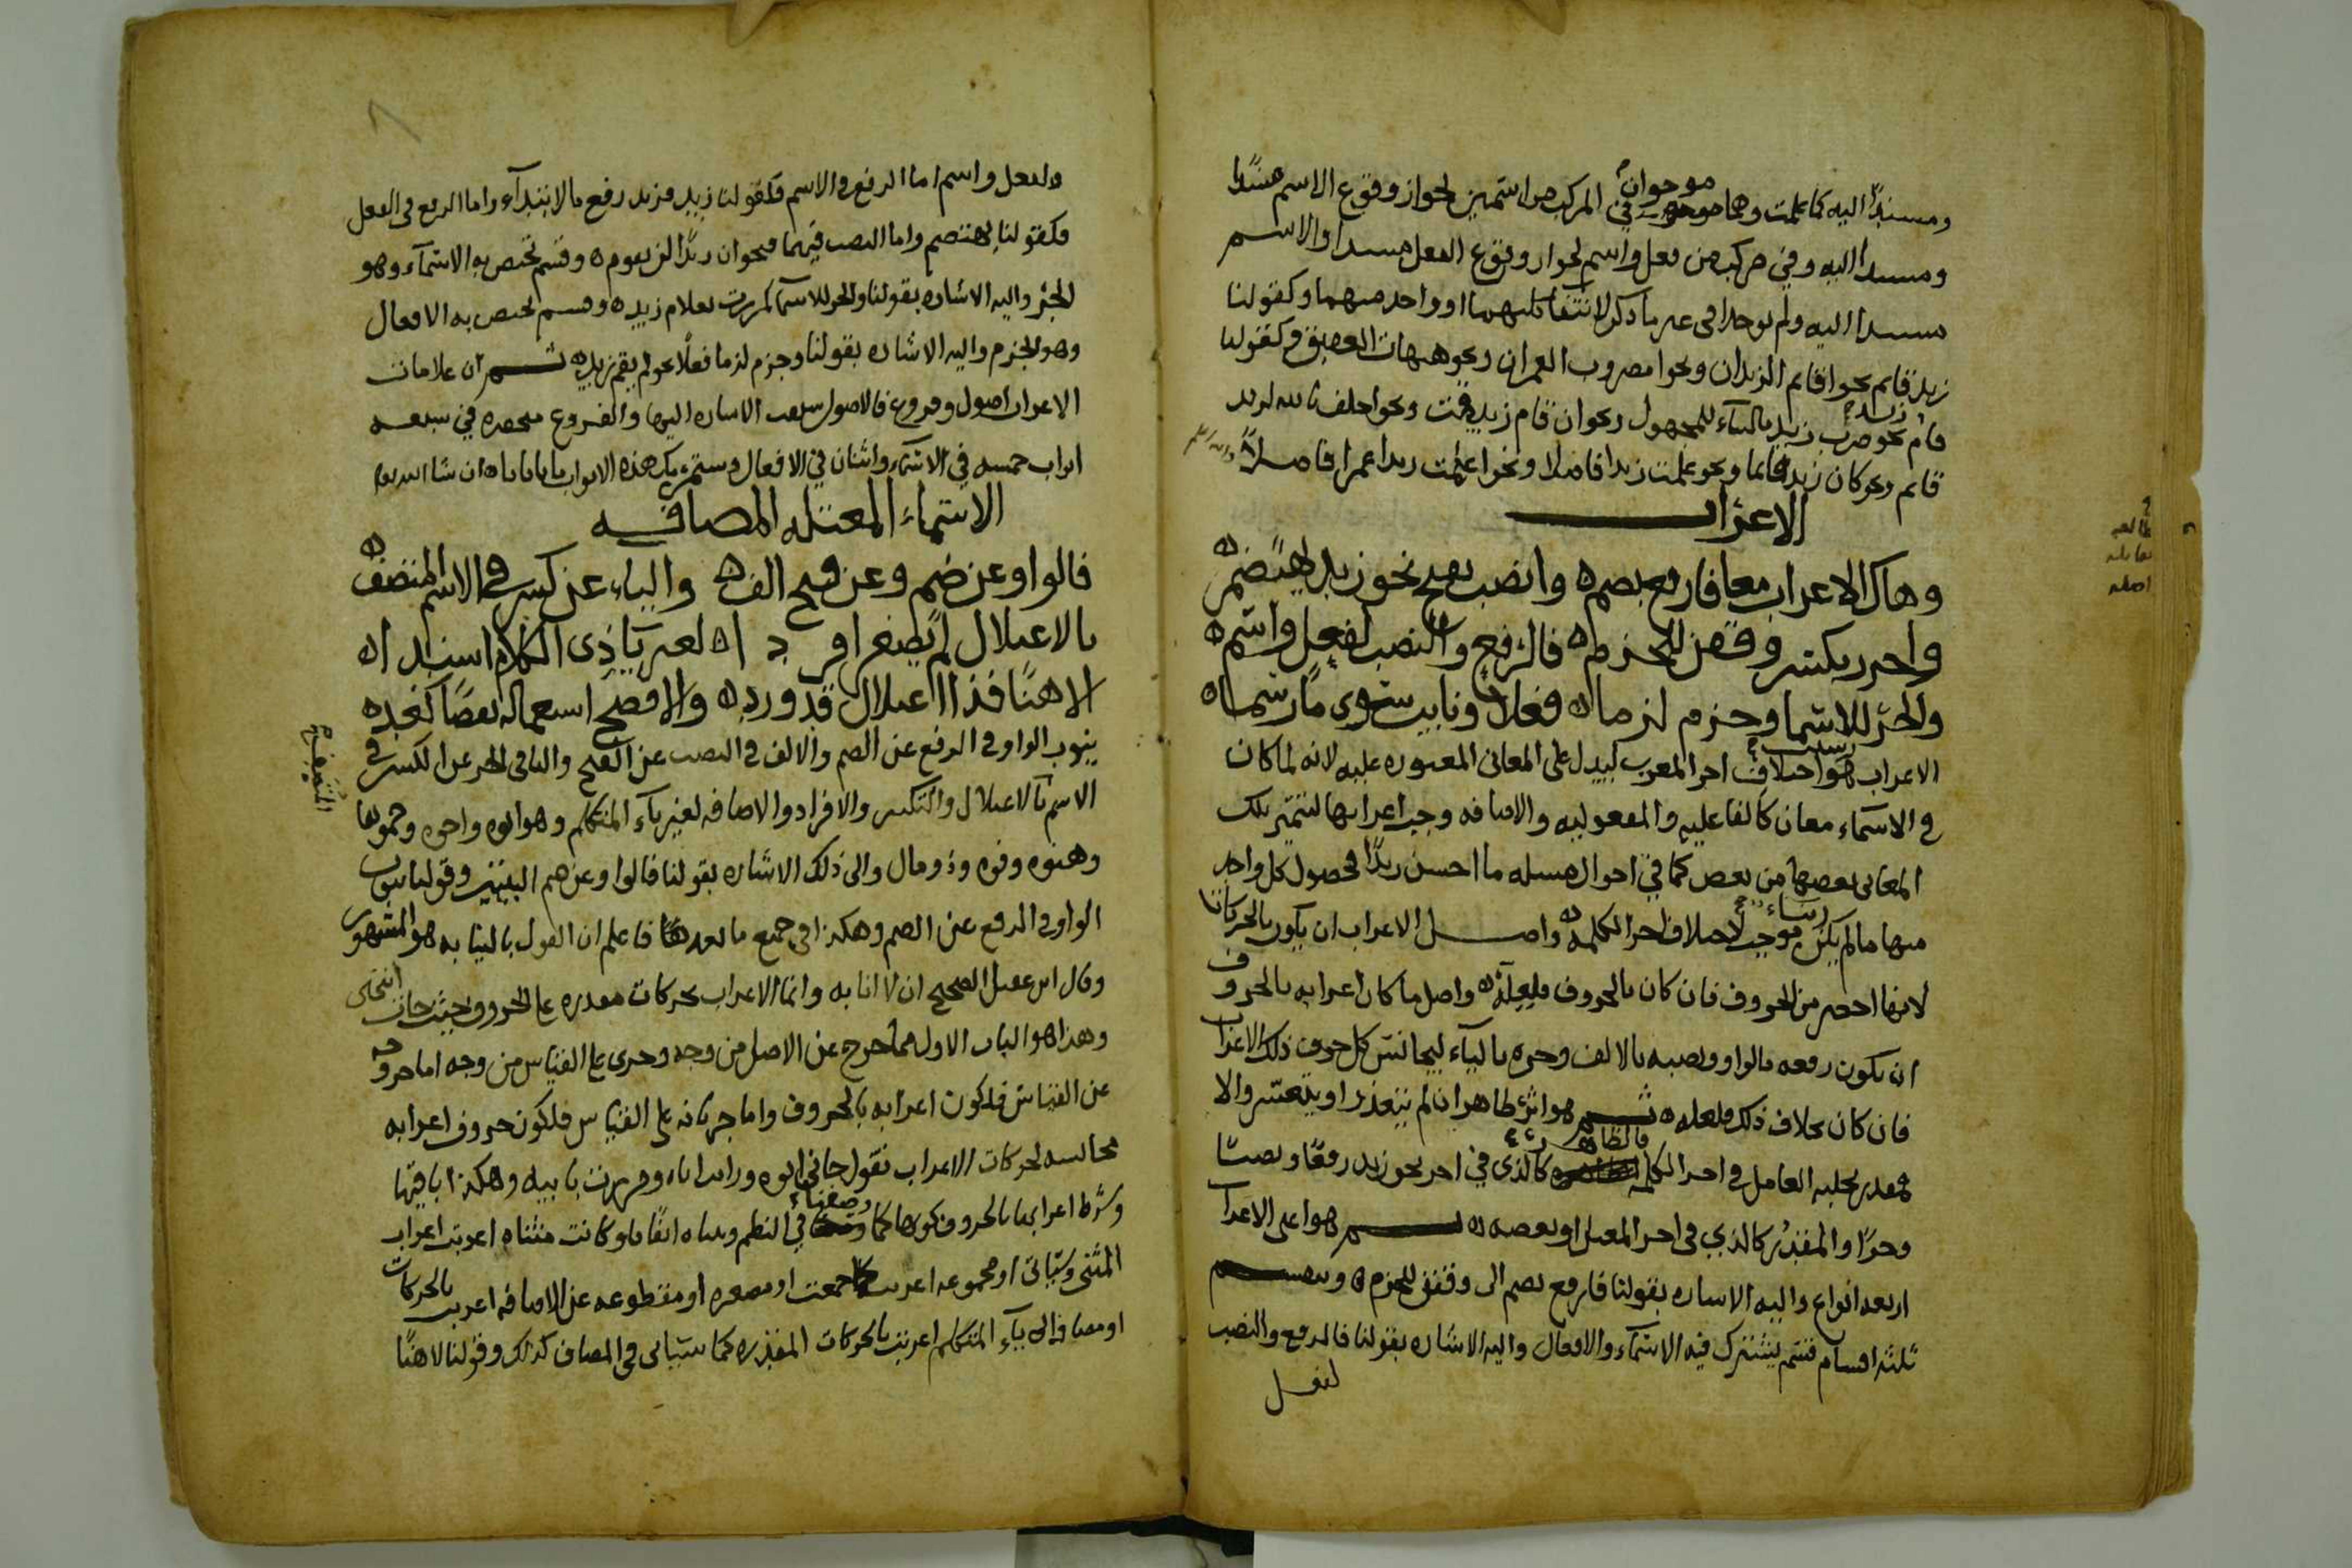 ومسندًا اليه كما علمت وهما موجودان في المركب من اسمين لجواز وقوع الاسم مسندًا
ومسندا اليه وفي مركب من فعل واسم لجواز وقوع الفعل مسندا والاسم
مسندا اليه ولم يوجدا في غير ما ذكر لانتفا كليهما او واحد منهما وكقولنا
زيد قايم نحو اقايم الزيدان ونحو امضروب العمران ونحو هيهات العقيق وكقولنا
قام زيد نحو ضرب زيد بالبناء للمجهول ونحو ان قام زيد قمت ونحو احلف بالله لزيد
قايم ونحو كان زيد قايما ونحو علمت زيدا فاضلا ونحو اعلمت زيدا عمرا فاضلاً
الاعراب
وهاك الاعراب معا فارفع بضم ه وانصب بفتح نحو زيد لن يهتضم ه
واجرر بكسر وقفن للجزم ه فالرفع والنصب لفعل واسم ه
والجر للاسما وجزم لزما ه فعلا ونايب سوى ما رسما ه
الاعراب هو اختلاف اخر المعرب ليدل على المعاني المعتوره عليه لانه لما كان
في الاسماء معان كالفاعليه والمفعوليه والاضافه وجب اعرابها لتتميز تلك
المعانى بعضها من بعض كما في احوال مسله ما احسن زيدًا فحصول كل واحد
منها ما لم يكن موجب لاختلاف اخر الكلمه ه واصل الاعراب ان يكون بالحركات
لانها اخصر من الحروف فان كان بالحروف فلعله ه واصل ما كان اعرابه بالحروف
ان يكون رفعه بالواو ونصبه بالالف وجره بالياء ليجانس كل حرف ذلك الاعراب
فان كان بخلاف ذلك فلعله ه ثم هو اثر ظاهر ان لم يتعذر او يتعسر والا
فمقدر يجلبه العامل في اخر الكلمه فالظاهر كالذى في اخر نحو زيد رفعًا ونصبًا
وجرًا والمقدر كالذي في اخر المعتل او بعضه ه ثم هو اعني الاعراب
اربعه انواع واليه الاشاره بقولنا فارفع بضم الى وقفن للجزم ه وينقسم
ثلثه اقسام قسم يشترك فيه الاسماء والافعال واليه الاشاره بقولنا فالرفع والنصب
لفعل
ولفعل واسم اما الرفع في الاسم فكقولنا زيد فزيد رفع بالابتداء واما الرفع في الفعل
فكقولنا يهتضم واما النصب فيهما فنحو ان زيدًا لن يقوم ه وقسم تختص به الاسماء وهو
الجر واليه الاشاره بقولنا والجر للاسما كمررت بغلام زيد ه وقسم يختص به الافعال
وهو الجزم واليه الاشاره بقولنا وجزم لزما فعلًا نحو لم يقم زيد ه ثم ان علامات
الاعراب اصول وفروع فالاصول سلفت الاشاره اليها والفروع منحصره في سبعه
ابواب خمسه في الاسماء واثنان في الافعال وستمر بك هذه الابواب بابا بابا ه ان شا الله تعالى
الاسماء المعتله المضافه
فالواو عن ضم وعن فتح الف ه والياء عن كسر في الاسم المتصف ه
بالاعتلال لم يصغر افردا ه لغير يا ذى الكلام اسندا ه
الا هنًا فذا اعتلال قد ورد ه والافصح استعماله نقصًا كغد ه
ينوب الواو في الرفع عن الضم والالف في النصب عن الفتح واليا في الجر عن الكسر في
الاسم بالاعتلال والتكبير والافراد والاضافه لغير ياء المتكلم وهو ابوه واخوه وحموها
وهنوه وفوه وذو مال والى ذلك الاشاره بقولنا فالواو عن ضم البيتين وقولنا ينوب
الواو في الرفع عن الضم وهكذا في جميع ما بعد هذا فاعلم ان القول بالنيابه هو المشهور
وقال ابن عقيل الصحيح ان لا انابه وانما الاعراب بحركات مقدره على الحروف حيث جاز انتهى
وهذا هو الباب الاول مما خرج عن الاصل من وجه وجرى على القياس من وجه اما خروجه
عن القياس فلكون اعرابه بالحروف واما جريانه على القياس فلكون حروف اعرابه
مجانسه لحركات الاعراب تقول جاني ابوه ورايت اباه ومررت بابيه وهكذا باقيها
وشرط اعرابها بالحروف كونها كما وصفنا في النظم وبيناه انفًا فلو كانت مثناه اعربت اعراب
المثنى وسياتى او مجموعه اعربت كما جمعت او مصغره او مقطوعه عن الاضافه اعربت بالحركات
او مضافه الى ياء المتكلم اعربت بالحركات المقدره كما سياتى في المضاف كذلك وقولنا الا هنًا